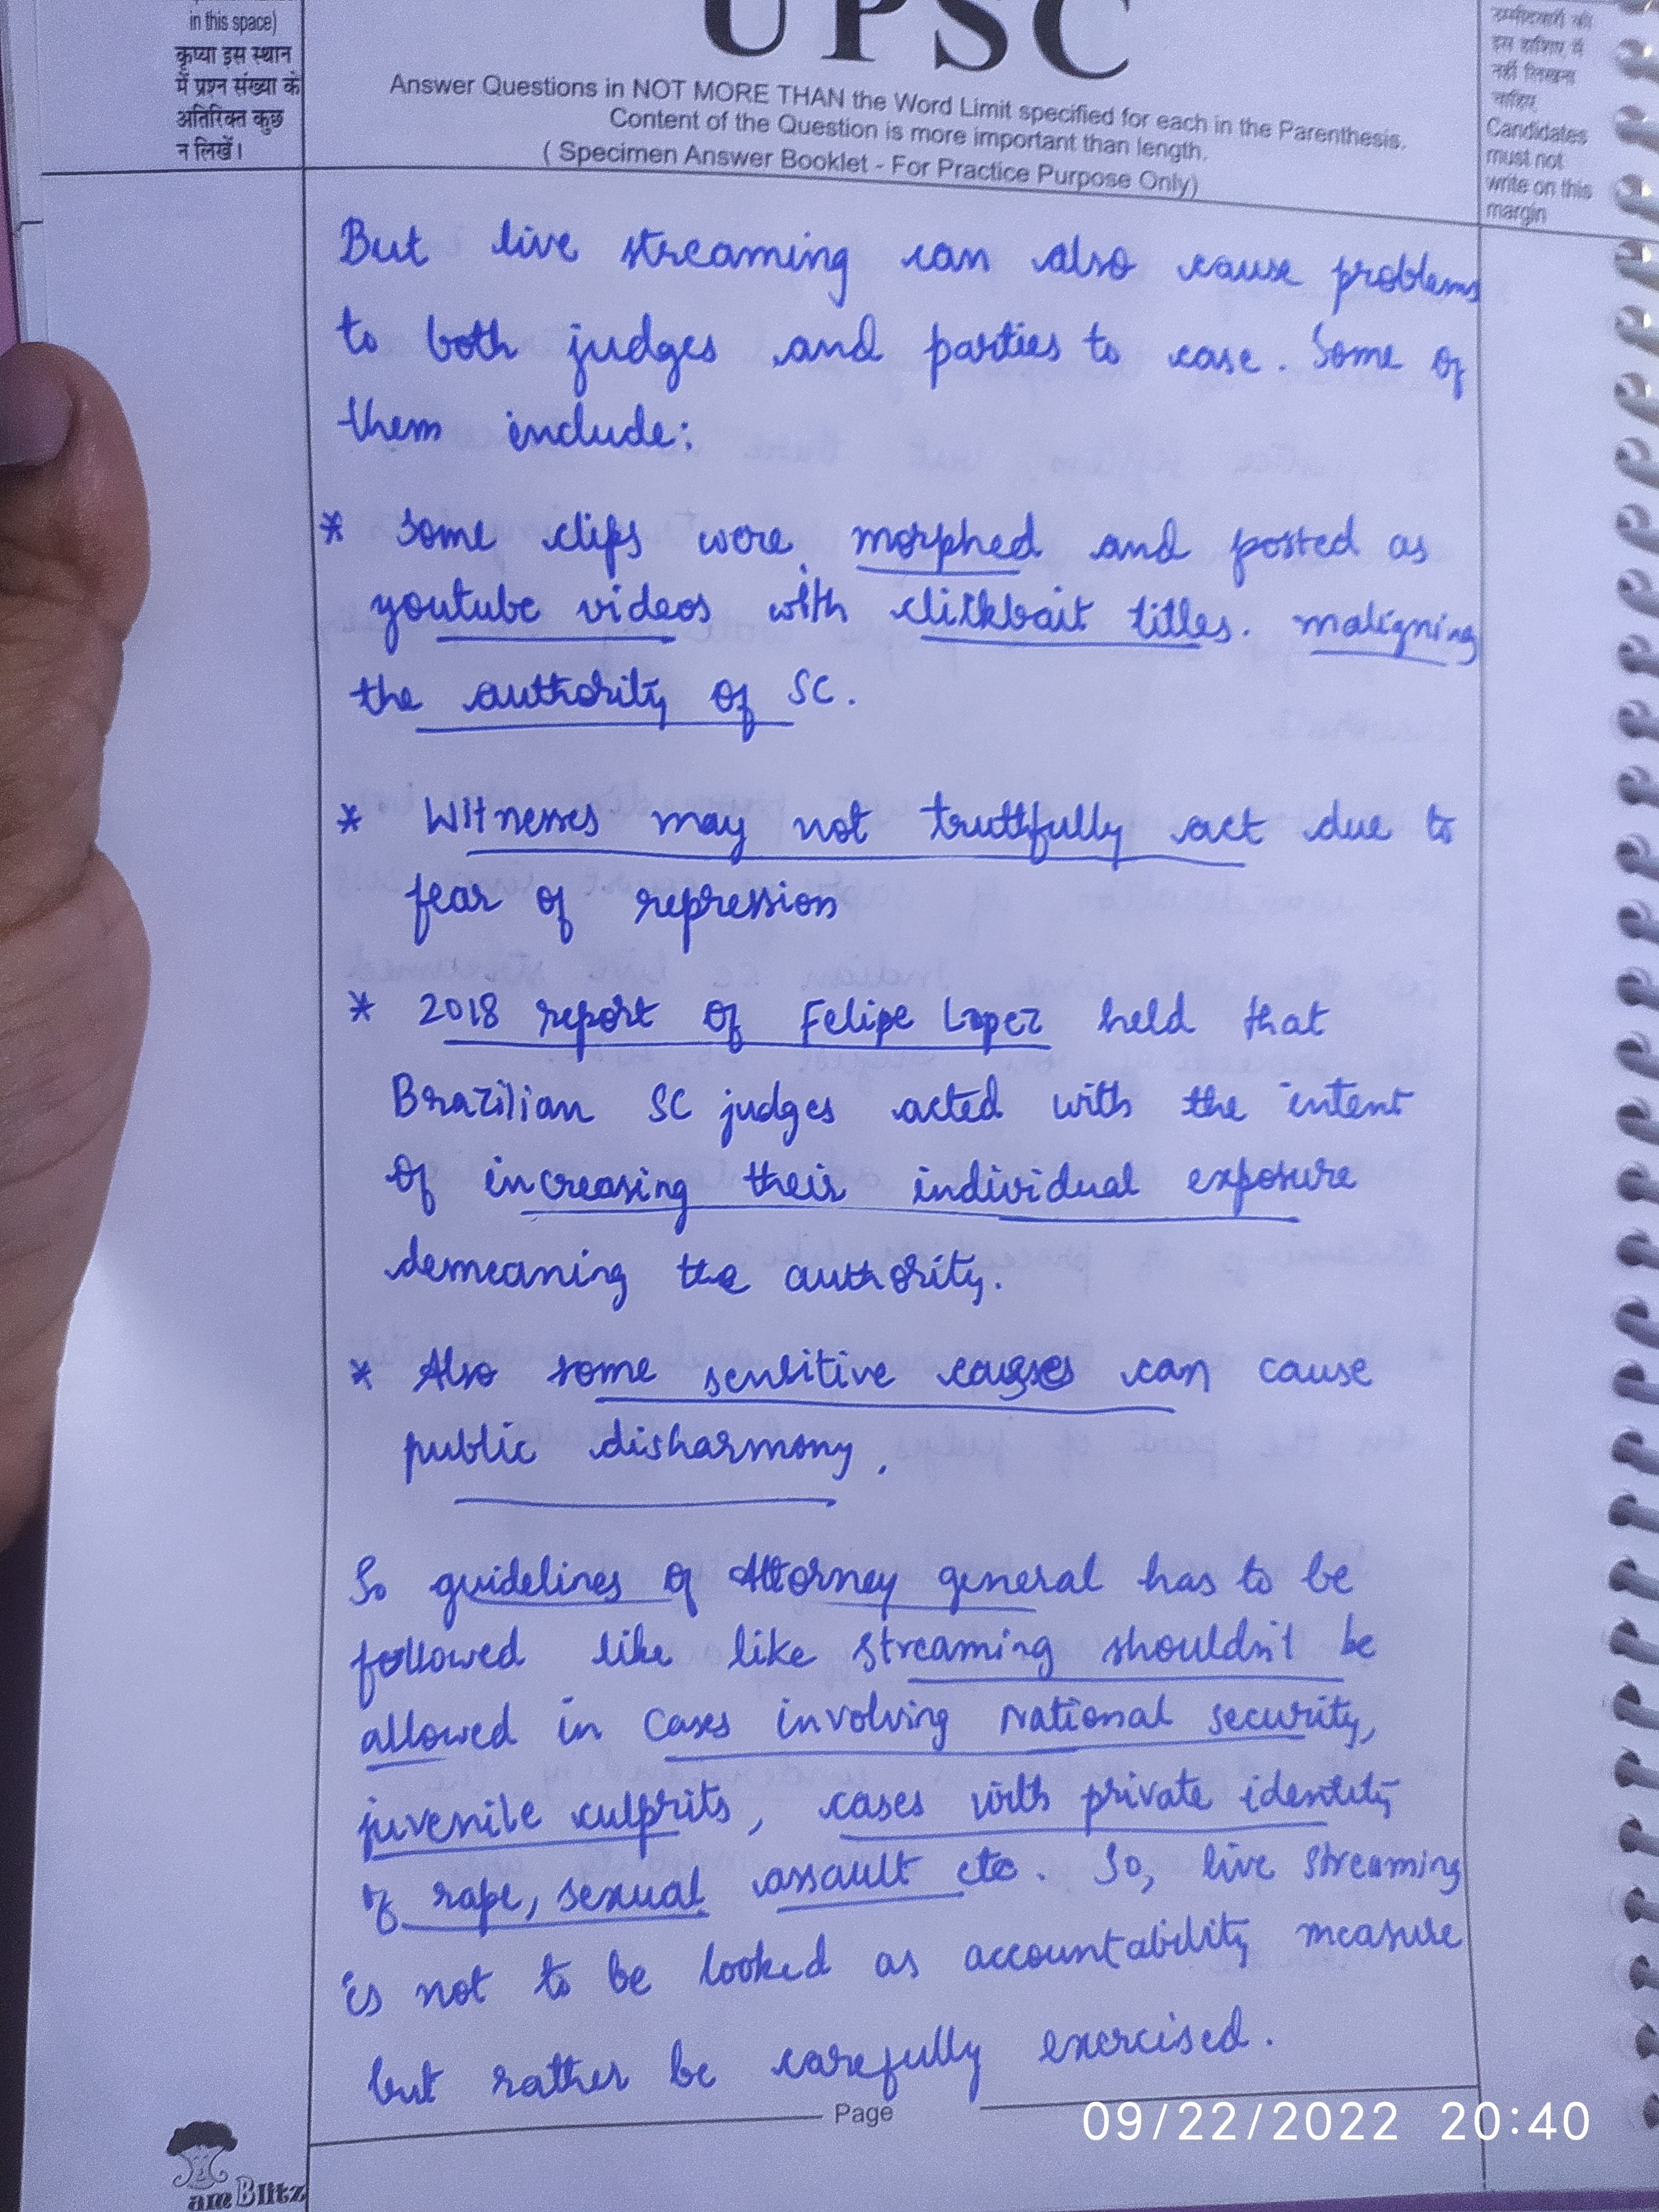 in this space)
कृप्या इस स्थान
में प्रश्न संख्या के
अतिरिक्त कुछ
न लिखें।
UPSC
Answer Questions in NOT MORE THAN the Word Limit specified for each in the Parenthesis.
Content of the Question is more important than length.
( Specimen Answer Booklet - For Practice Purpose Only)
उम्मीदवारों को
इस हाशिए में
नहीं लिखना
चाहिए
Candidates
must not
write on this
margin
But live streaming can also cause problems
to both judges and parties to case. Some of
them include:
* Some clips were morphed and posted as
youtube videos with clickbait titles. maligning
the authority of SC.
* Witnesses may not truthfully act due to
fear of repression
* 2018 report of Felipe Lopez held that
Brazilian SC judges acted with the intent
of increasing their individual exposure
demeaning the authority.
* Also some sensitive can cause
public disharmony.
So guidelines of Attorney general has to be
followed like like streaming shouldn't be
allowed in cases involving National security,
juvenile culprits, cases with private identity
of rape, sexual assault etc. So, live streaming
is not to be looked as accountability measure
but rather be carefully exercised.
Page
09/22/2022 20:40
am Blitz